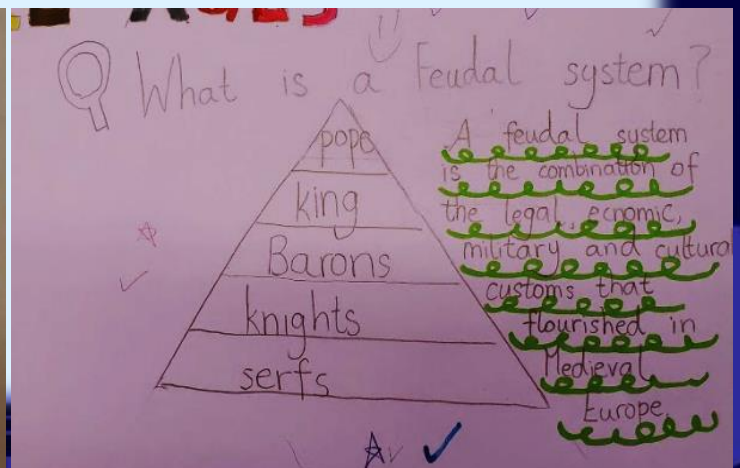 What is a Feudal system?
pope
king
Barons
knights
serfs
A feudal system
is the combination of
the legal, ecnomic,
military and cultural
customs that
flourished in
Medieval
Europe.